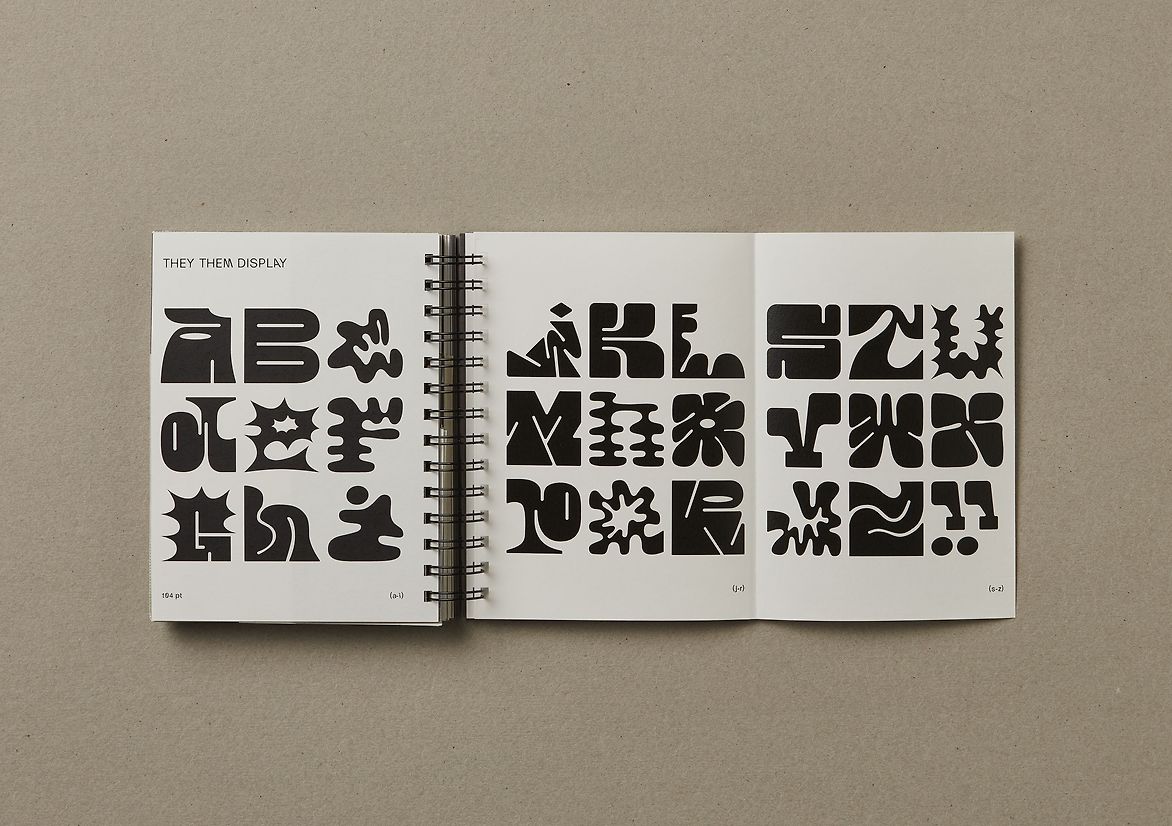 THEY THEM DISPLAY
A B C
d e F
G h i
104 pt (a-i)
j K L
M n O
P Q R
(j-r)
S T U
V W X
Y Z !!
(s-z)